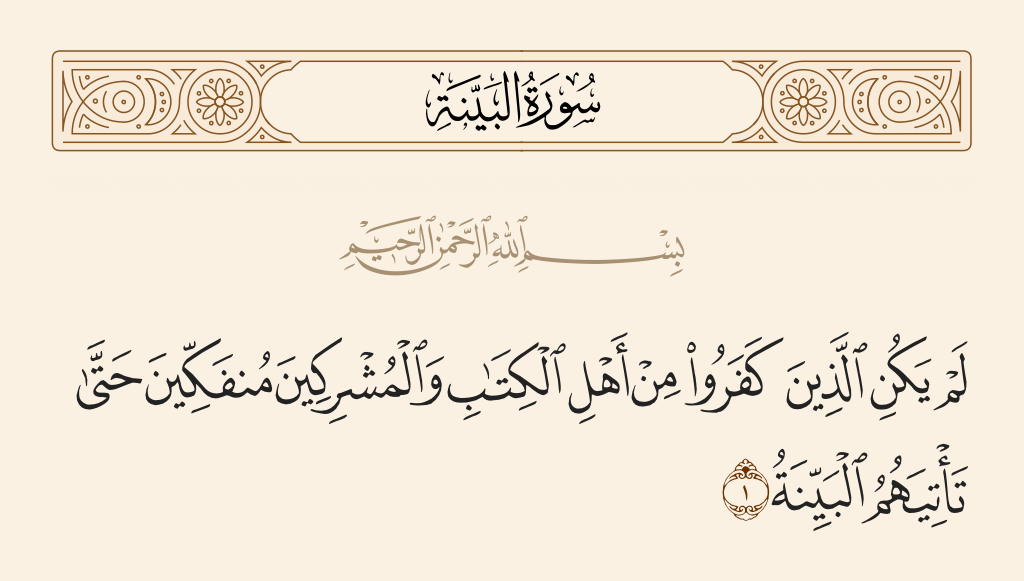 سُورَةُ البَيِّنَةِ
بِسْمِ ٱللَّهِ ٱلرَّحْمَٰنِ ٱلرَّحِيمِ
لَمْ يَكُنِ ٱلَّذِينَ كَفَرُوا۟ مِنْ أَهْلِ ٱلْكِتَٰبِ وَٱلْمُشْرِكِينَ مُنفَكِّينَ حَتَّىٰ
تَأْتِيَهُمُ ٱلْبَيِّنَةُ ١